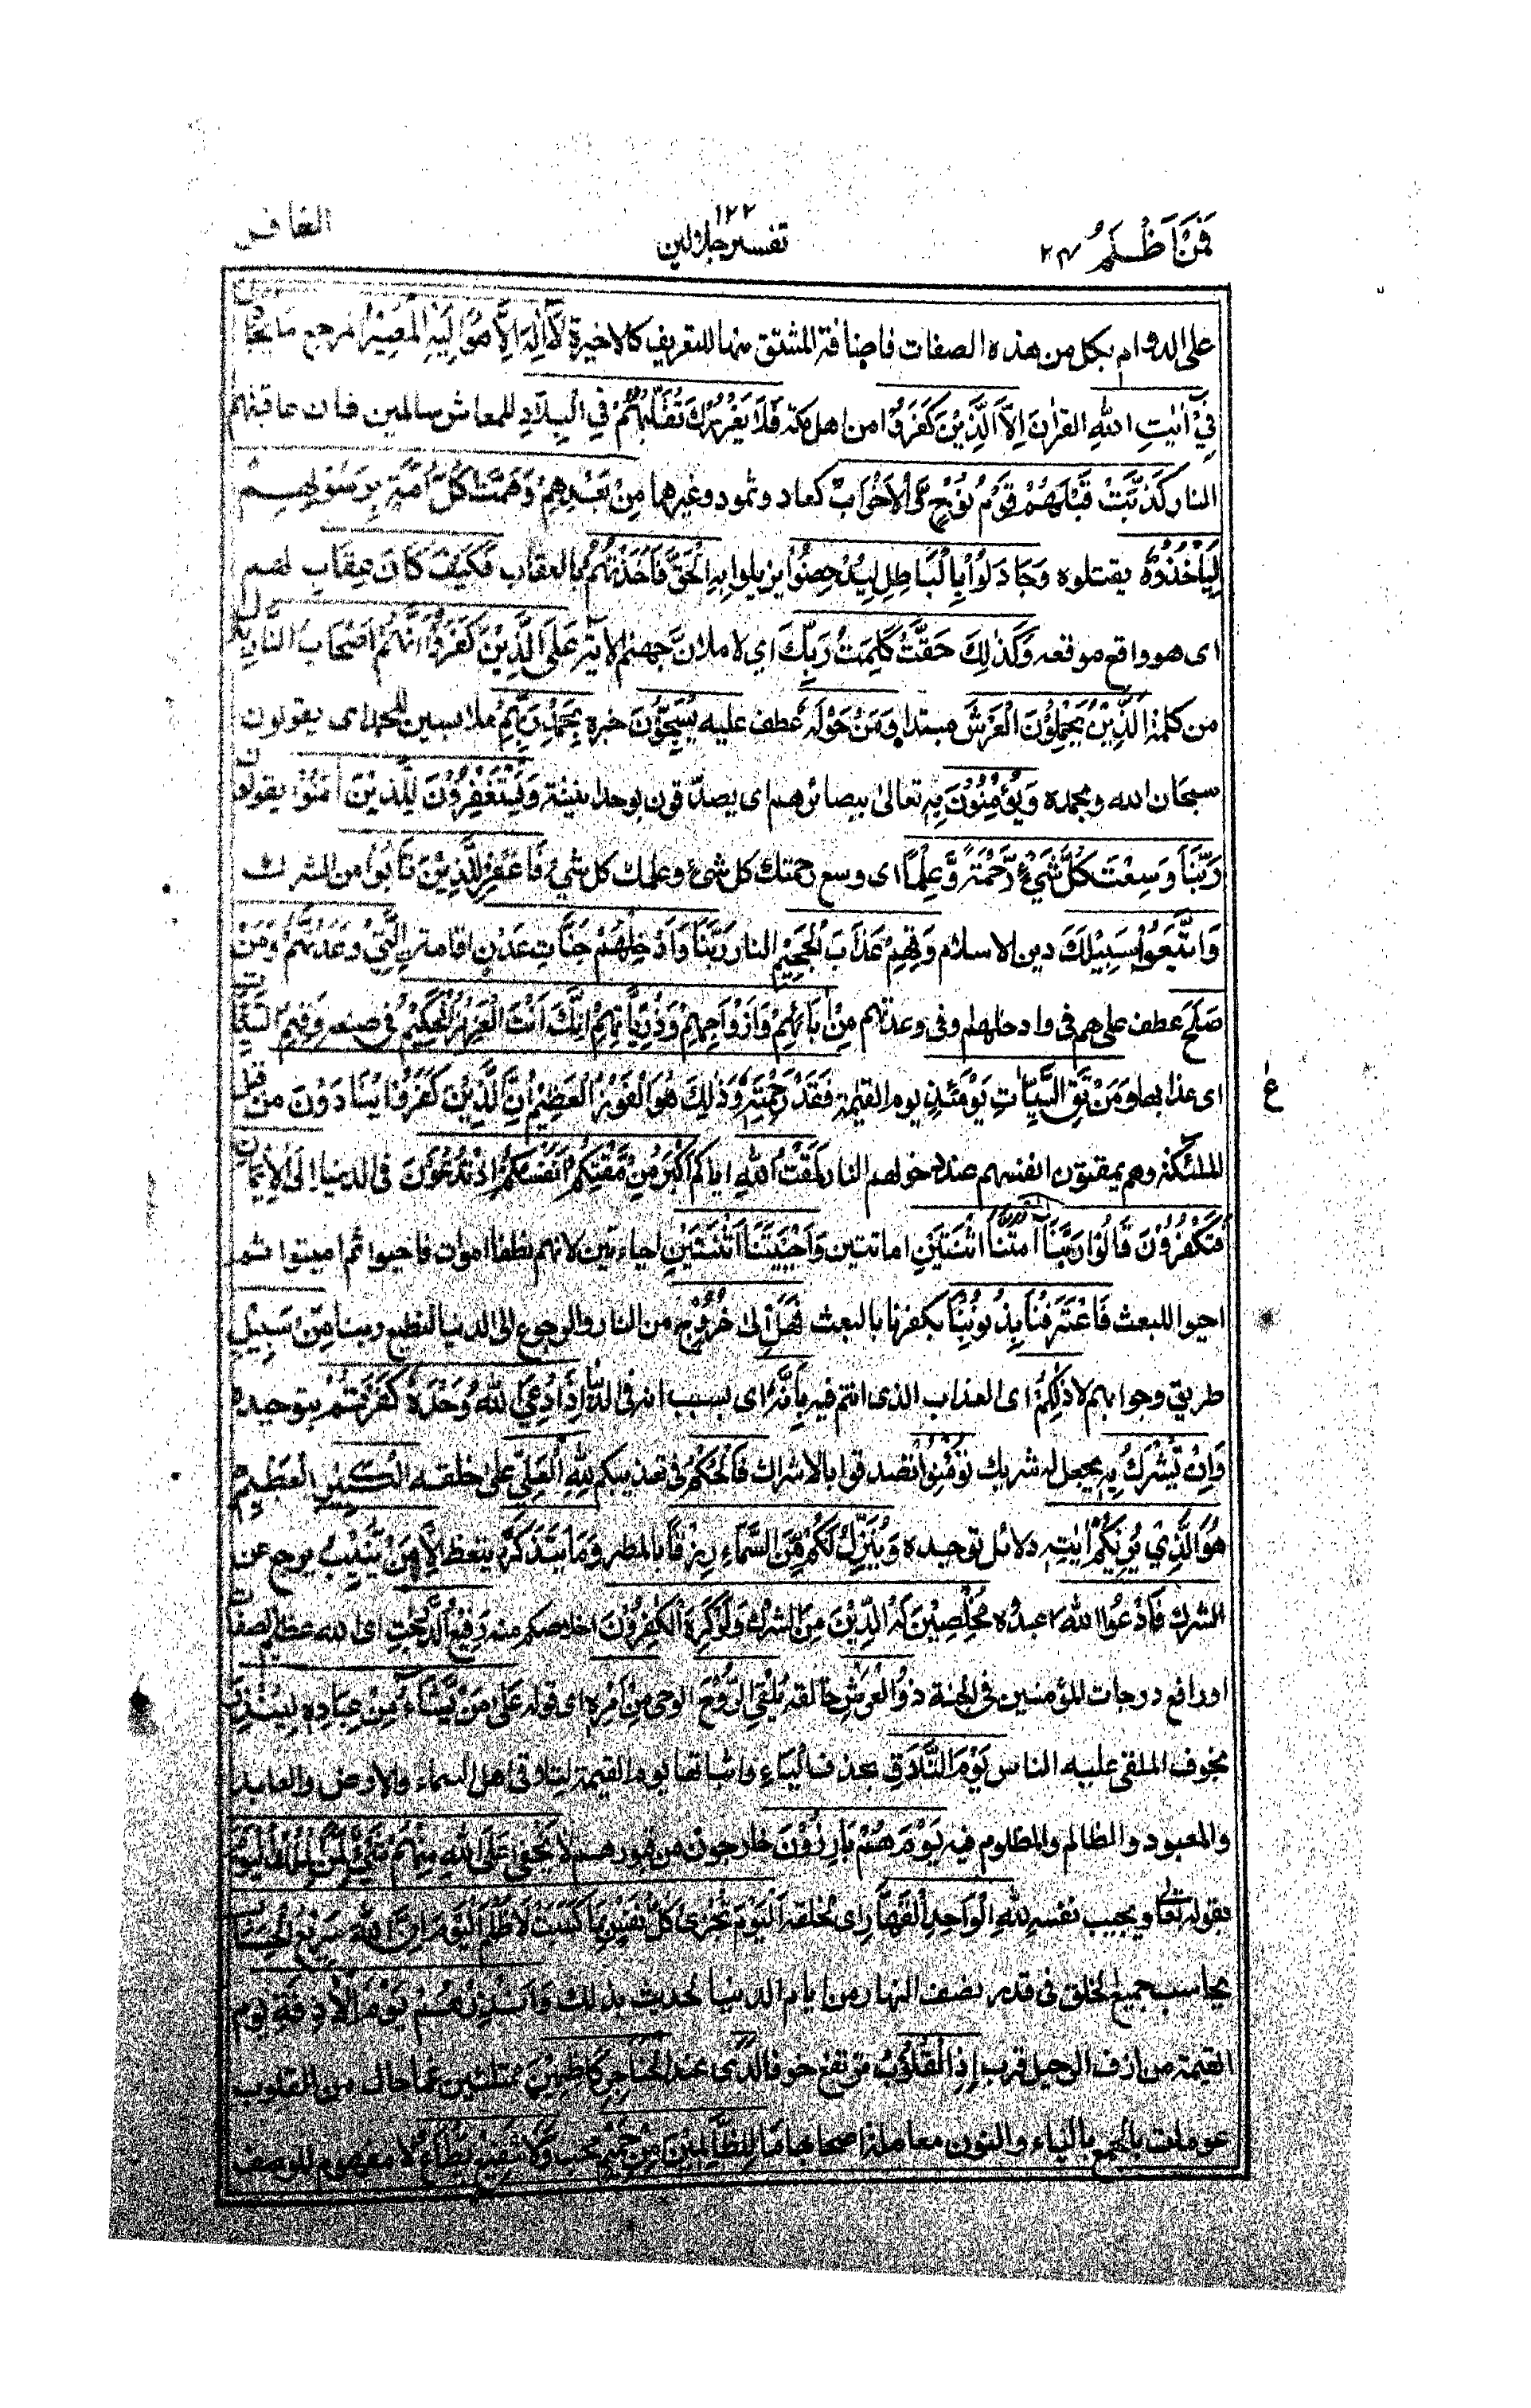 فَمَنْ أَظْلَمُ ٢٤
١٢٢
تفسير جلالين
الغافر
على الدوام بكل من هذه الصفات فاضافة المشتق منها للتعريف كالاخيرة لَآ اِلٰهَ اِلَّا هُوَ اِلَيْهِ الْمَصِيْرُ المرجع مَا يُجَادِلُ
فِيْٓ اٰيٰتِ اللهِ القراٰن اِلَّا الَّذِيْنَ كَفَرُوْا من اهل مكة فَلَا يَغْرُرْكَ تَقَلُّبُهُمْ فِي الْبِلَادِ للمعاش سالمين فان عاقبتهم
النار كَذَّبَتْ قَبْلَهُمْ قَوْمُ نُوْحٍ وَّالْاَحْزَابُ كعاد وثمود وغيرهما مِنْ بَعْدِهِمْ وَهَمَّتْ كُلُّ اُمَّةٍ بِرَسُوْلِهِمْ
لِيَأْخُذُوْهُ يقتلوه وَجَادَلُوْا بِالْبَاطِلِ لِيُدْحِضُوْا يزيلوا بِهِ الْحَقَّ فَاَخَذْتُهُمْ بالعقاب فَكَيْفَ كَانَ عِقَابِ لهم
اى هو واقع موقعه وَكَذٰلِكَ حَقَّتْ كَلِمَتُ رَبِّكَ اى لاملأن جهنم الاية عَلَى الَّذِيْنَ كَفَرُوْٓا اَنَّهُمْ اَصْحَابُ النَّارِ بدل
من كلمة اَلَّذِيْنَ يَحْمِلُوْنَ الْعَرْشَ مبتدأ وَمَنْ حَوْلَهٗ عطف عليه يُسَبِّحُوْنَ خبره بِحَمْدِ رَبِّهِمْ ملابسين للحمد اى يقولون
سبحان الله وبحمده وَيُؤْمِنُوْنَ بِهٖ تعالى ببصائرهم اى يصدقون بوحدانيته وَيَسْتَغْفِرُوْنَ لِلَّذِيْنَ اٰمَنُوْا يقولون
رَبَّنَا وَسِعْتَ كُلَّ شَيْءٍ رَّحْمَةً وَّعِلْمًا اى وسع رحمتك كل شئ وعلمك كل شئ فَاغْفِرْ لِلَّذِيْنَ تَابُوْا من الشرك
وَاتَّبَعُوْا سَبِيْلَكَ دين الاسلام وَقِهِمْ عَذَابَ الْجَحِيْمِ النار رَبَّنَا وَاَدْخِلْهُمْ جَنّٰتِ عَدْنٍ اقامة الَّتِيْ وَعَدْتَّهُمْ وَمَنْ
صَلَحَ عطف على هم فى وادخلهم او فى وعدتهم مِنْ اٰبَآئِهِمْ وَاَزْوَاجِهِمْ وَذُرِّيّٰتِهِمْ اِنَّكَ اَنْتَ الْعَزِيْزُ الْحَكِيْمُ فى صنعه وَقِهِمُ السَّيِّاٰتِ
اى عذابها وَمَنْ تَقِ السَّيِّاٰتِ يَوْمَئِذٍ يوم القيمة فَقَدْ رَحِمْتَهٗ وَذٰلِكَ هُوَ الْفَوْزُ الْعَظِيْمُ اِنَّ الَّذِيْنَ كَفَرُوْا يُنَادَوْنَ من قبل
ع
الملئكة وهم يمقتون انفسهم عند دخولهم النار لَمَقْتُ اللهِ اياكم اَكْبَرُ مِنْ مَّقْتِكُمْ اَنْفُسَكُمْ اِذْ تُدْعَوْنَ فى الدنيا اِلَى الْاِيْمَانِ
فَتَكْفُرُوْنَ قَالُوْا رَبَّنَآ اَمَتَّنَا اثْنَتَيْنِ اماتتين وَاَحْيَيْتَنَا اثْنَتَيْنِ احياءتين لانهم نطفا اموات فاحيوا ثم اميتوا ثم
احيوا للبعث فَاعْتَرَفْنَا بِذُنُوْبِنَا بكفرنا بالبعث فَهَلْ اِلٰى خُرُوْجٍ من النار والرجوع الى الدنيا لنطيع ربنا مِّنْ سَبِيْلٍ
طريق وجوابهم لا ذٰلِكُمْ اى العذاب الذى انتم فيه بِاَنَّهٗٓ اى بسبب انه فى الدنيا اِذَا دُعِيَ اللهُ وَحْدَهٗ كَفَرْتُمْ بتوحيده
وَاِنْ يُّشْرَكْ بِهٖ يجعل له شريك تُؤْمِنُوْا تصدقوا بالاشراك فَالْحُكْمُ فى تعذيبكم لِلّٰهِ الْعَلِيِّ على خلقه الْكَبِيْرِ العظيم
هُوَ الَّذِيْ يُرِيْكُمْ اٰيٰتِهٖ دلائل توحيده وَيُنَزِّلُ لَكُمْ مِّنَ السَّمَآءِ رِزْقًا بالمطر وَمَا يَتَذَكَّرُ يتعظ اِلَّا مَنْ يُّنِيْبُ يرجع عن
الشرك فَادْعُوا اللهَ اعبدوه مُخْلِصِيْنَ لَهُ الدِّيْنَ من الشرك وَلَوْ كَرِهَ الْكٰفِرُوْنَ اخلاصكم منه رَفِيْعُ الدَّرَجٰتِ اى الله عظيم الصفات
اورافع درجات المؤمنين فى الجنة ذُو الْعَرْشِ خالقه يُلْقِي الرُّوْحَ الوحى مِنْ اَمْرِهٖ اى قوله عَلٰى مَنْ يَّشَآءُ مِنْ عِبَادِهٖ لِيُنْذِرَ
يخوف الملقى عليه الناس يَوْمَ التَّلَاقِ بحذف الياء واثباتها يوم القيمة لتلاقى اهل السماء والارض والعابد
والمعبود والظالم والمظلوم فيه يَوْمَ هُمْ بَارِزُوْنَ خارجون من قبورهم لَا يَخْفٰى عَلَى اللهِ مِنْهُمْ شَيْءٌ لِمَنِ الْمُلْكُ الْيَوْمَ
يقوله تعالى ويجيب نفسه لِلّٰهِ الْوَاحِدِ الْقَهَّارِ اى لخلقه اَلْيَوْمَ تُجْزٰى كُلُّ نَفْسٍ بِمَا كَسَبَتْ لَا ظُلْمَ الْيَوْمَ اِنَّ اللهَ سَرِيْعُ الْحِسَابِ
يحاسب جميع الخلق فى قدر نصف النهار من ايام الدنيا لحديث بذلك وَاَنْذِرْهُمْ يَوْمَ الْاٰزِفَةِ يوم
القيمة من ازف الرحيل قرب اِذِ الْقُلُوْبُ ترتفع خوفا لَدَى عند الْحَنَاجِرِ كَاظِمِيْنَ ممتلئين غما حال من القلوب
عوملت بالجمع بالياء والنون معاملة اصحابها مَا لِلظّٰلِمِيْنَ مِنْ حَمِيْمٍ محب وَّلَا شَفِيْعٍ يُّطَاعُ لا مفهوم للوصف